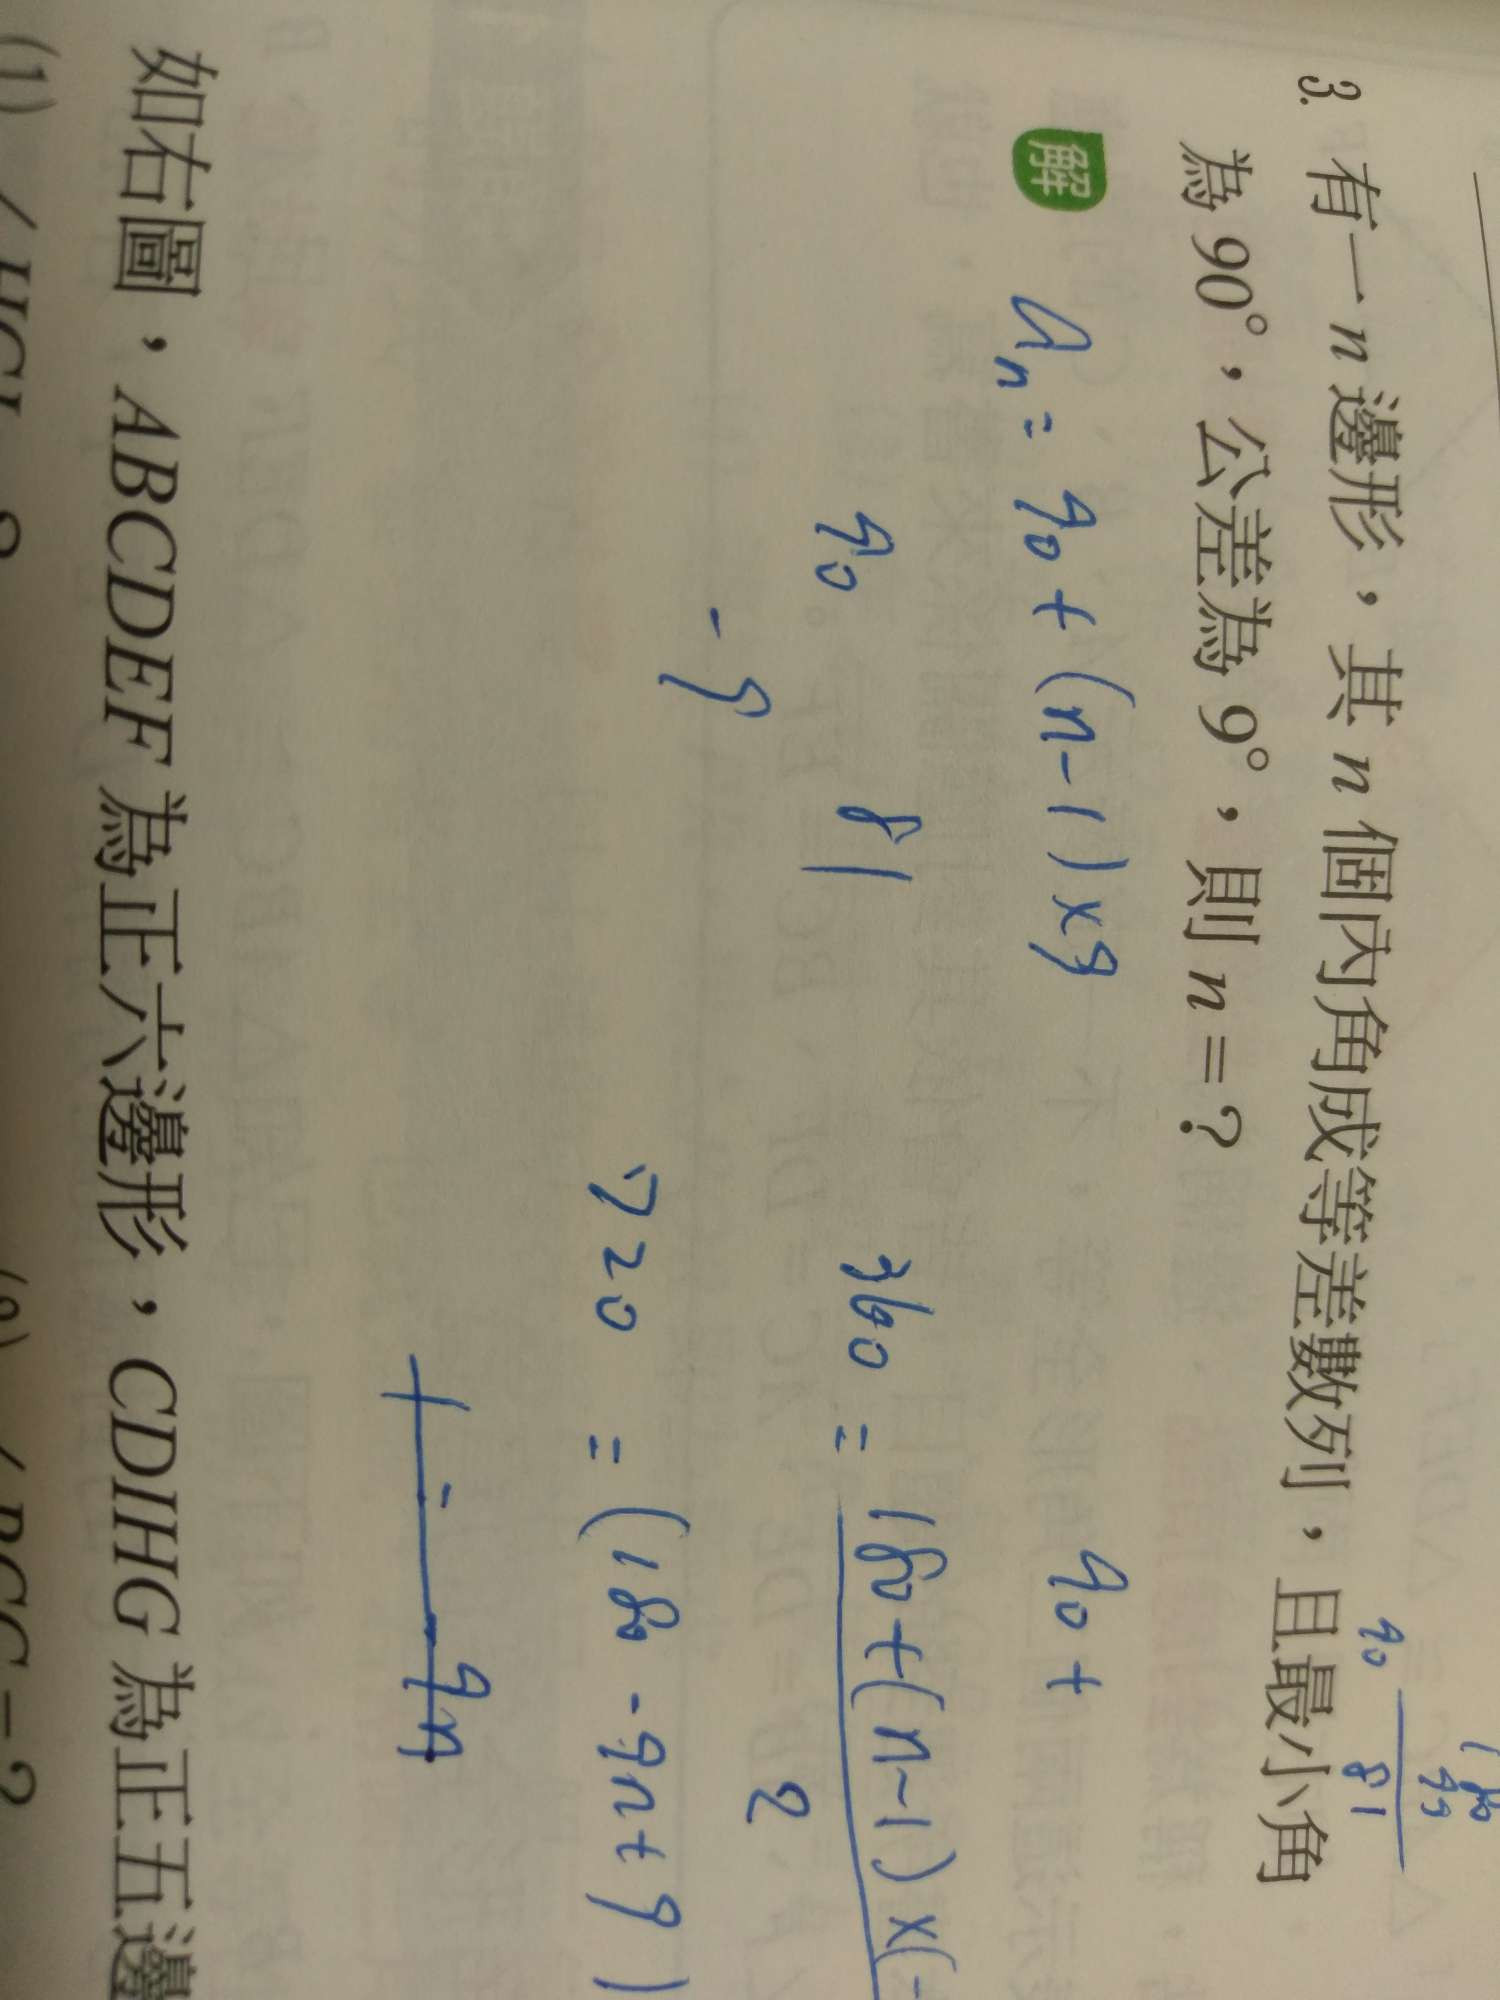 3. 有一 n 邊形，其 n 個內角成等差數列，且最小角
為 90°，公差為 9°，則 n = ?
解
an = 90 + (n-1)×9
90 +
90
81
-9
360 = 180+(n-1)×(-
2
720 = (180 - 9n + 9)
9n
90
81
180
99
如右圖，ABCDEF 為正六邊形，CDIHG 為正五邊
(1)
(2)